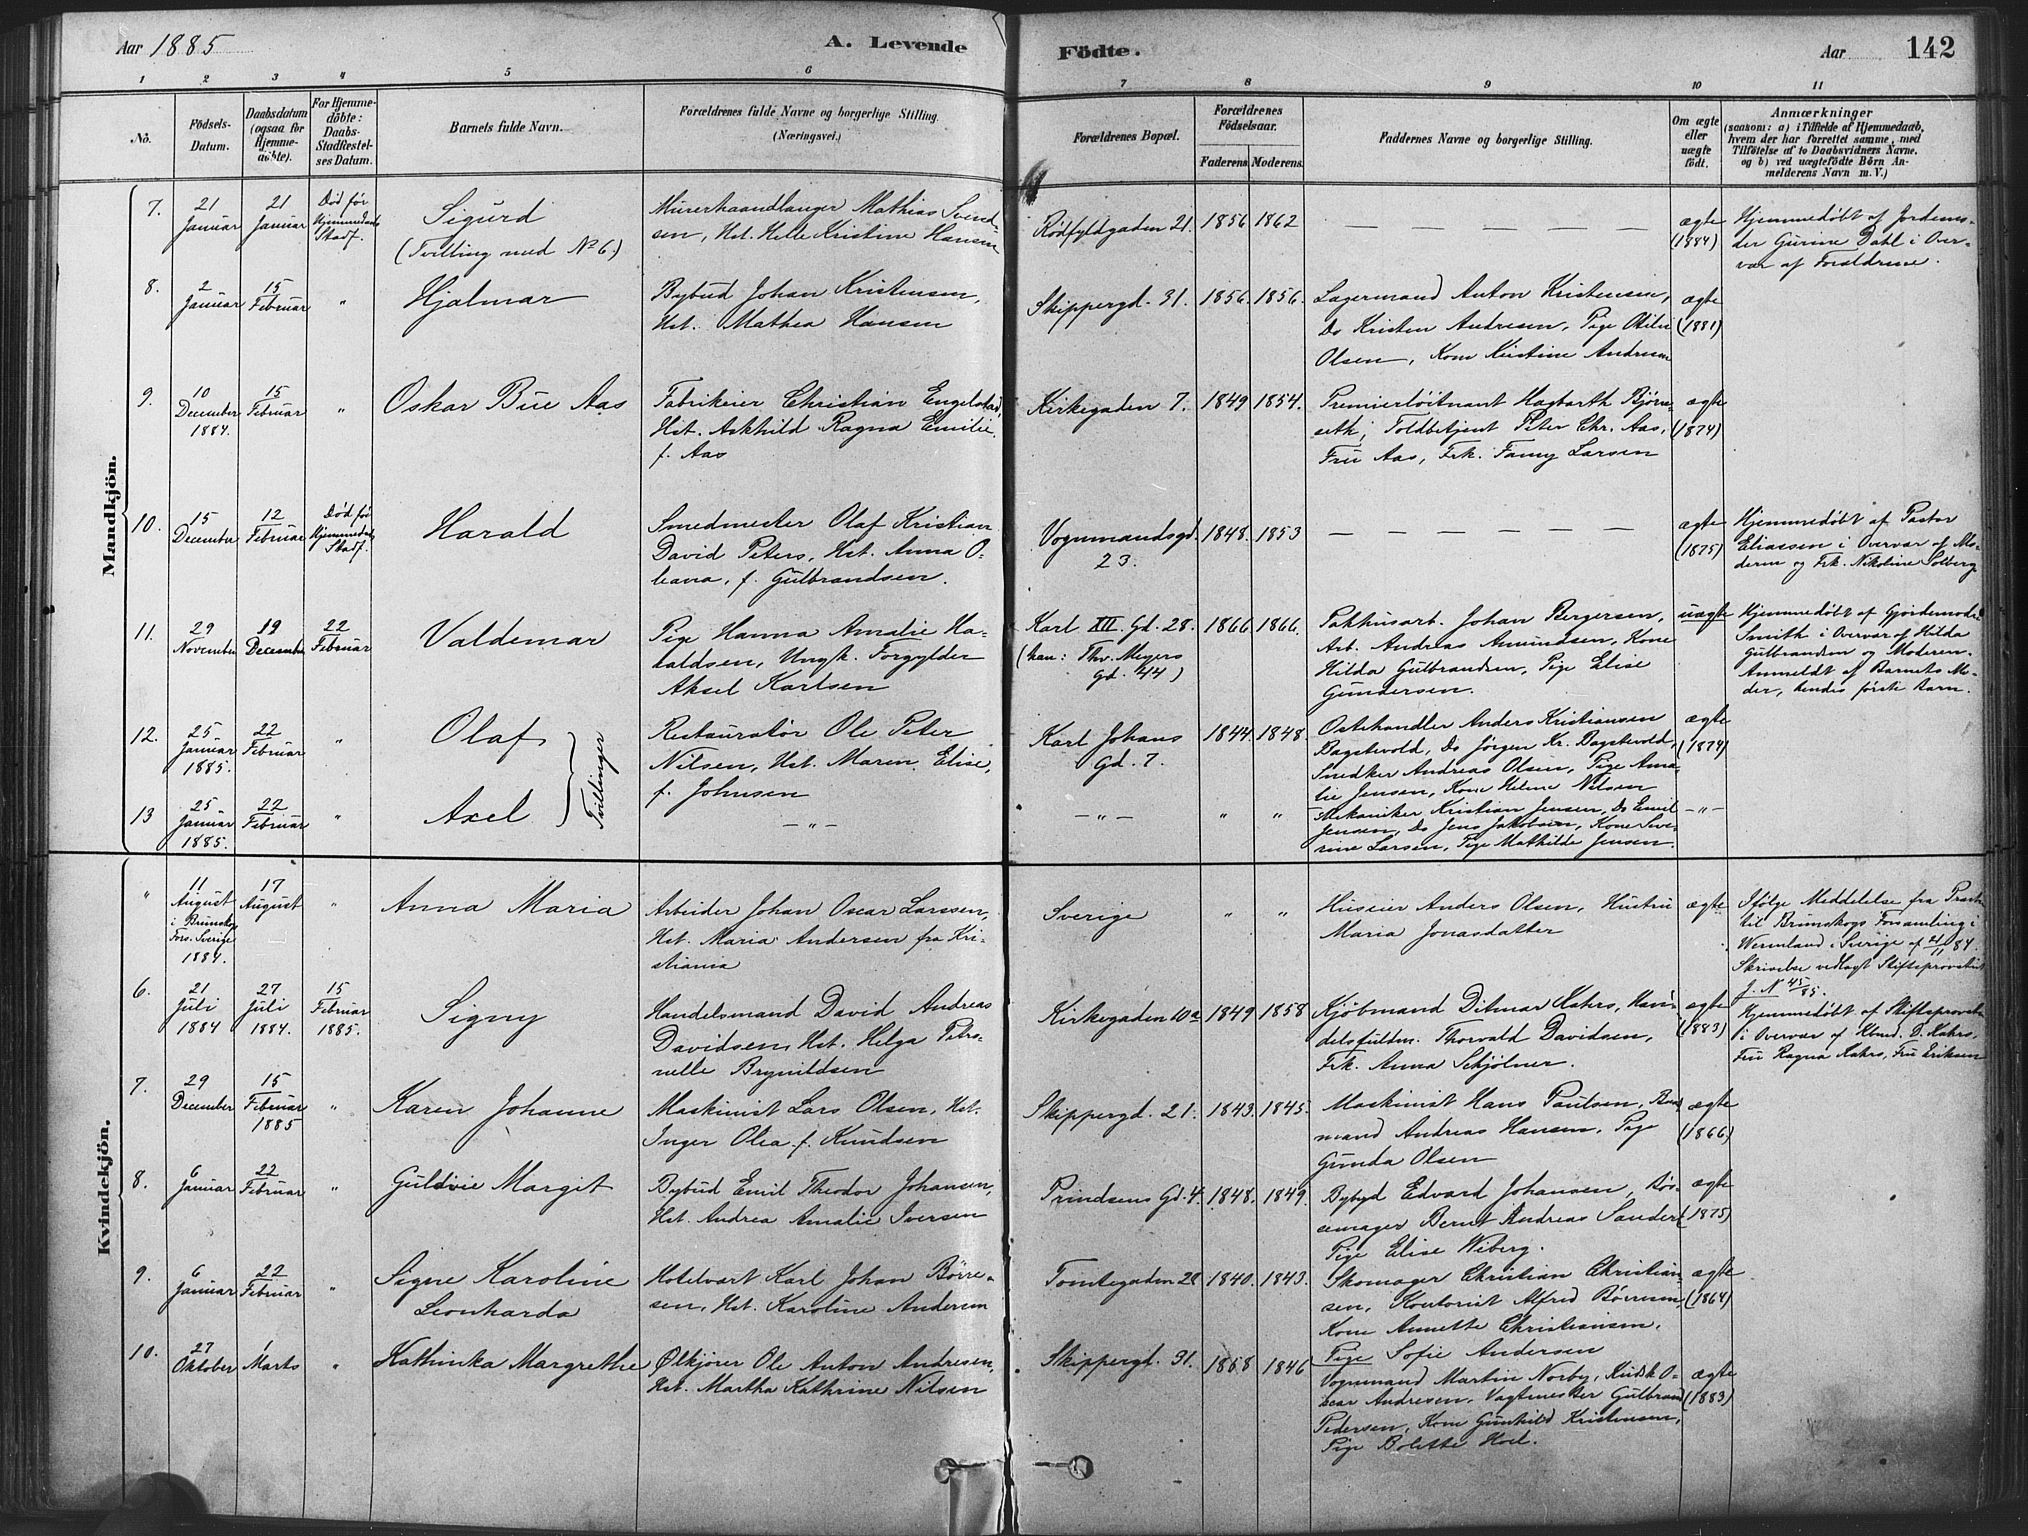 Aar 1885
A. Levende
Födte.
Aar
142
1 2 3 4 5 6 7 8 9 10 11
No.
Födsels-Datum.
Daabsdatum (ogsaa for Hjemme-döbte).
For Hjemme-döbte: Daabs-Stadfæstel-ses Datum.
Barnets fulde Navn.
Forældrenes fulde Navne og borgerlige Stilling. (Næringsvei.)
Forældrenes Bopæl.
Forældrenes Födselsaar.
Faderens. Moderens.
Faddernes Navne og borgerlige Stilling.
Om ægte eller uægte födt.
Anmærkninger
(saasom: a) i Tilfælde af Hjemmedaab, hvem der har forrettet samme, med Tilföielse af to Daabsvidners Navne, og b) ved uægtefödte Börn An-melderens Navn m. V.)
Mandkjön.
7. 21 Januar 21 Januar Död för Hjemmedaab Stadf.
Sigurd
(Tvilling med No 6.)
Murerhaandlanger Mathias Svend-
sen, Hst. Helle Kristine Hansen
Rödfyldgaden 21. 1856 1862
— — — — — —
ægte (1884)
Hjemmedöbt af Jordemo-
der Gurine Dahl i Over-
vær af Forældrene.
8. 2 Januar 15 Februar "
Hjalmar
Bybud Johan Kristensen,
Hst. Mathea Hansen
Skippergd. 31. 1856. 1856.
Lagermand Anton Kristensen,
Do Kristen Andresen, Pige Otilie
Olsen, Kone Kristine Andresen
ægte (1881)
9. 10 December 1884. 15 Februar "
Oskar Bue Aas
Fabrikeier Christian Engelstad,
Hst. Askhild Ragna Emilie
f. Aas
Kirkegaden 7. 1849 1854.
Premierlöitnant Hagbarth Björn-
seth, Toldbetjent Peter Chr. Aas,
Fru Aas, Frk. Fanny Larsen
ægte (1874)
10. 15 December 12 Februar Död för Hjemmedaab Stadf.
Harald
Smedmester Olaf Kristian
David Peters, Hst. Anna O-
leana, f. Gulbrandsen.
Vognmandsgd. 23. 1848. 1853
— — — — — —
ægte (1875)
Hjemmedöbt af Pastor
Eliassen i Overvær af Mo-
deren og Frk. Nikoline Solberg
11. 29 November 19 December 22 Februar
Valdemar
Pige Hanna Amalie Ha-
raldsen, Ungk. Forgylder
Aksel Karlsen
Karl XII Gd. 28. 1866 1866.
(han: Thv. Meyers Gd. 44)
Pakhusarb. Johan Bergersen,
Arb. Andreas Amundsen, Kone
Hilda Gulbrandsen, Pige Elise
Gundersen.
uægte
Hjemmedöbt af Gjordemoder
Smith i Overvær af Hilda
Gulbrandsen og Moderen.
Anmeldt af Barnets Mo-
der, hendes förste Barn.
12. 25 Januar 1885. 22 Februar "
Olaf
Tvillinger
Restauratör Ole Peter
Nilsen, Hst. Maren Elise,
f. Johnsen
Karl Johans Gd. 7. 1844. 1848.
Ostehandler Anders Kristiansen
Bagstevold, Do Jörgen Kr. Bagstevold,
Snedker Andreas Olsen, Pige Ama-
lie Jensen, Kone Helene Nilsen
ægte (1874)
13 25 Januar 1885. 22 Februar "
Axel
— " —
— " — " "
Mekaniker Kristian Jensen, Do Emil
Jensen, Do Jens Jakobsen, Kone Seve-
rine Larsen, Pige Mathilde Jensen.
— " —
Kvindekjön.
" 11 August i Brunskog Fors. Sverige 1884. 17 August "
Anna Maria
Arbeider Johan Oscar Larssen,
Hst. Maria Andersen fra Kri-
stiania
Sverige " "
Huseier Anders Olsen, Hustru
Maria Jonasdatter
ægte
Ifölge Meddelelse fra
til Brunskogs Forsamling i
Wermland i Sverige af 21/11 84.
Skrivelse vedlagt Stiftsprovstiet
J. N 45/85.
6. 21 Juli 1884 27 Juli 1884. 15 Februar 1885.
Signy
Handelsmand David Andreas
Davidsen, Hst. Helga Petro-
nelle Brynildsen
Kirkegaden 10a 1849 1858
Kjöbmand Ditmar Kahrs, Han-
delsfuldm. Thorvald Davidsen,
Frk. Anna Schjölner.
ægte (1883)
Hjemmedöbt af Stiftsprovsten
i Overvær af Kbmd. D. Kahrs,
Fru Ragna Kahrs, Fru Eriksen
7. 29 December 15 Februar 1885 "
Karen Johanne
Maskinist Lars Olsen, Hst.
Inger Olea f. Knudsen
Skippergd. 21. 1843. 1845.
Maskinist Hans Paulsen,
mand Andreas Hansen, Pige
Gunda Olsen
ægte (1866)
8. 6 Januar 22 Februar "
Guldvie Margit
Bybud Emil Theodor Johansen,
Hst. Andrea Amalie Iversen
Prindsens Gd. 4. 1848. 1849.
Bybyd Edvard Johansen, Bör-
semager Bernt Andreas Sander,
Pige Elise Wiberg.
ægte (1875)
9. 6 Januar 22 Februar "
Signe Karoline
Leonharda
Hotelvært Karl Johan Börre-
sen, Hst. Karoline Andersen
Tomtegaden 2a 1840. 1843.
Skomager Christian Christian-
sen, Kontorist Alfred Börresen,
Kone Annette Christiansen,
Pige Sofie Andersen
ægte (1864)
10. 27 Oktober 1 Marts "
Kathinka Margrethe
Ölkjörer Ole Anton Andresen,
Hst. Martha Kathrine Nilsen
Skippergd. 31. 1858 1846
Vognmand Martin Norby, Kudsk O-
scar Andresen, Vagtmester Gulbrand
Pedersen, Kone Gunhild Kristensen,
Pige Bolette Hoel.
ægte (1883)